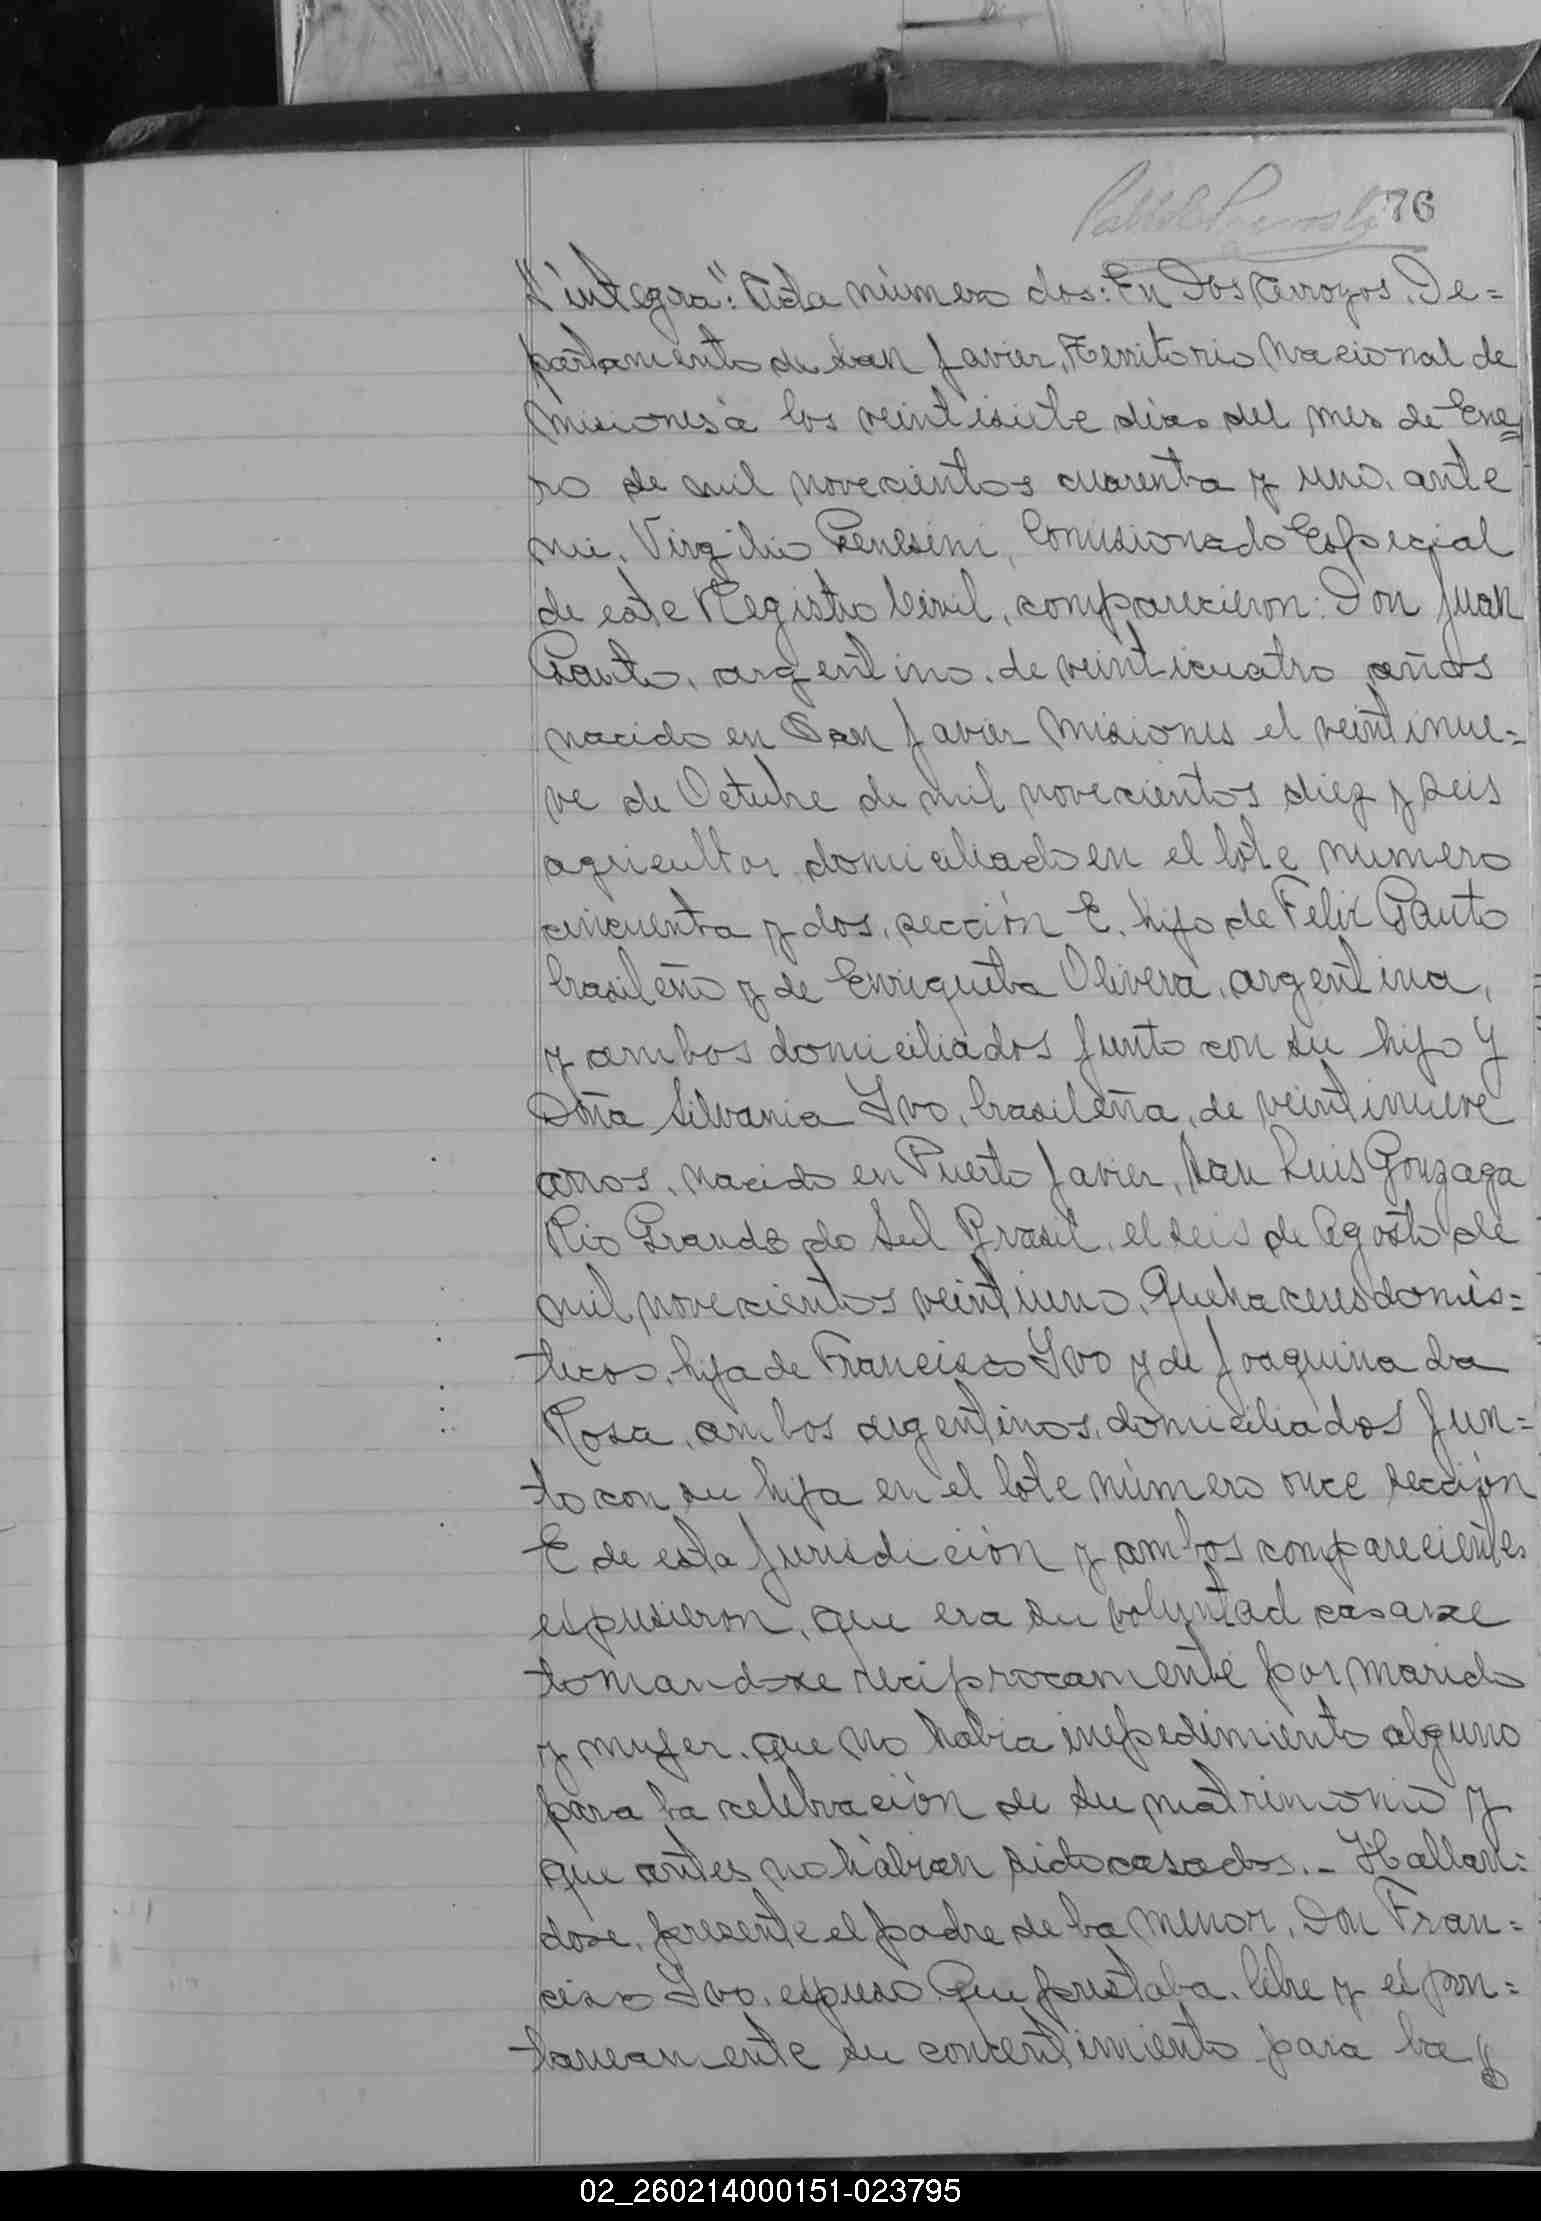 76
"íntegra": Acta número dos: En Dos Arroyos, De=
partamento de San Javier, Territorio Nacional de
Misiones a los veintisiete días del mes de Ene=
ro de mil novecientos cuarenta y uno, ante
mi, Virgilio Comisionado Especial
de este Registro Civil, comparecieron: Don Juan
Gauto, argentino, de veinticuatro años
nacido en San Javier Misiones el veintinue=
ve de Octubre de mil novecientos diez y seis
agricultor, domiciliado en el lote numero
cincuenta y dos, sección E. hijo de Felix Gauto
brasileño y de Enriqueta Olivera, argentina,
y ambos domiciliados junto con su hijo y
Doña Silvania Ivo, brasileña, de veintinueve
años, nacido en Puerto Javier, San Luis Gonzaga
Rio Grande do Sul Brasil, el seis de Agosto de
mil novecientos veintiuno, Quehaceres domés=
ticos, hija de Francisco Ivo y de Joaquina da
Rosa, ambos argentinos, domiciliados jun=
to con su hija en el lote número once sección
E de esta jurisdicion y ambos comparecientes
espusieron, que era su voluntad casarse
tomandose reciprocamente por marido
y mujer, que no habia impedimiento alguno
para la celebración de su matrimonio y
que antes no habían sido casados.- Hallan=
dose, presente el padre de la menor, Don Fran=
cisco Ivo, espuso Que prestaba, libre y espon=
taneamente su concentimiento para la
02_260214000151-023795